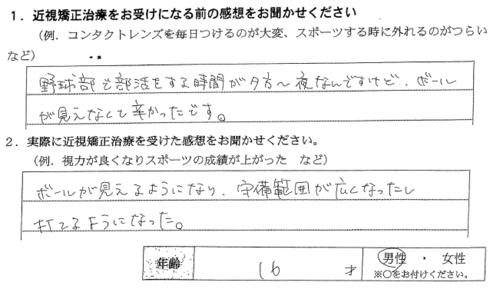 1．近視矯正治療をお受けになる前の感想をお聞かせください
（例．コンタクトレンズを毎日つけるのが大変、スポーツする時に外れるのがつらい
など）
野球部で部活をする時間が夕方〜夜なんですけど、ボール
が見えなくて辛かったです。
2．実際に近視矯正治療を受けた感想をお聞かせください。
（例．視力が良くなりスポーツの成績が上がった　など）
ボールが見えるようになり、守備範囲が広くなったし
打てるようになった。
年齢　16　才　男性　・　女性
※○をお付けください。